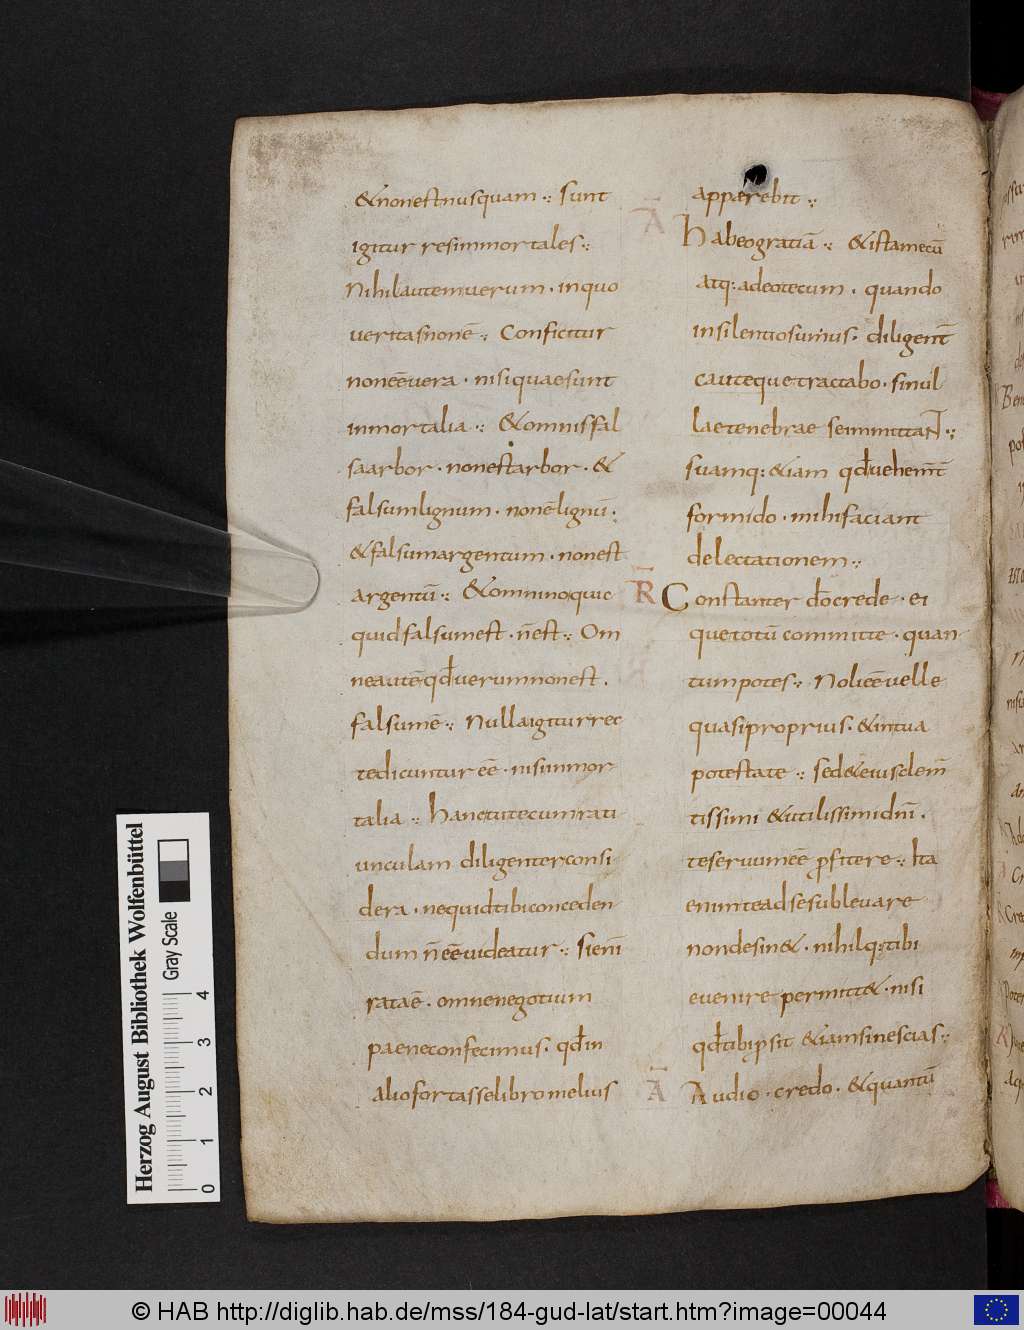 &nonestnusquam·:· Sunt
igitur resinmortales·:·
Nihilautemuerum· inquo
ueritasnonē·:· Conficitur
nonēēuera· nisiquaesunt
inmortalia·:· &omnisfal
saarbor· nonestarbor· &
falsumlignum· nonēlignū·
&falsumargentum· nonest
argentū·:· &omninoquic
quidfalsumest· n̄est·:· Om
neautēqđuerumnonest·
falsumē·:· Nullaigiturrec
tedicuntur ēē· nisinmor
talia·:· hanctutecumrati
unculam diligenterconsi
dera· nequidtibiconceden
dum n̄ēēuideatur·:· Sienī
rataē· omnenegotium
paeneconfecimus· qđin
aliofortasselibromelius
apparebit·:·
Ā habeogratiā·:· &istamecū
atq:adeotecum· quando
insilentiosumus· diligent̄
cautequetractabo· sinul
laetenebrae seinmittaNT·:·
suamq: &iam qđuehem̄t
formido· mihifaciant
delectationem·:·
R̄ Constanter dōcrede· ei
quetotū committe· quan
tumpotes·:· Noliēēuelle
quasiproprius· &intua
potestate·:· sed&eiusclem̄
tissimi &utilissimidnī·
teseruumēē p̄fitere·:· Ita
enimteadsesubleuare
nondesin&· nihilq:tibi
euenirepermitt&· nisi
qđtibip̄sit &iamsinescias·:·
Ā Audio· credo· &quantū
Herzog August Bibliothek Wolfenbüttel
Gray Scale
0 1 2 3 4
© HAB http://diglib.hab.de/mss/184-gud-lat/start.htm?image=00044